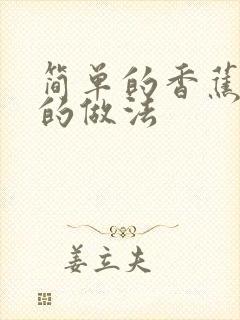 简单的香蕉
的做法
姜立夫